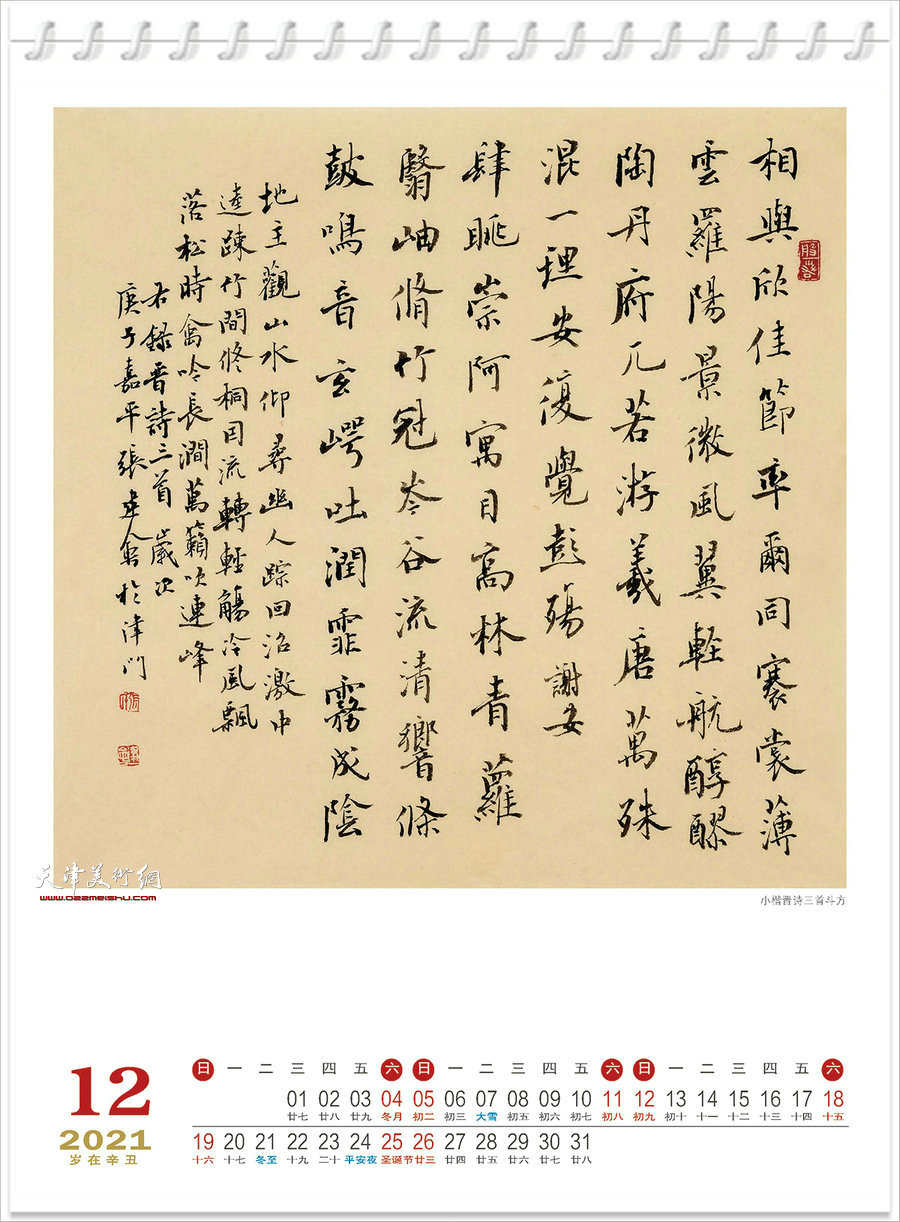 相與欣佳節率爾同褰裳薄
雲羅陽景微風翼輕航醇醪
陶丹府兀若游羲唐萬殊
混一理安復覺彭殤謝安
肆眺崇阿寓目高林青蘿
翳岫脩竹冠岑谷流清響條
鼓鳴音玄崿吐潤霏霧成陰
地主觀山水仰尋幽人踪回沼激中
逵疎竹間修桐因流轉輕觴冷風飄
落松時禽吟長澗萬籟吹連峰
右錄晉詩三首歲次
庚子嘉平張建會於津門
天津美術網
www.022meishu.com
小楷晋诗三首斗方
12
2021
岁在辛丑
日 一 二 三 四 五 六 日 一 二 三 四 五 六 日 一 二 三 四 五 六
01 02 03 04 05 06 07 08 09 10 11 12 13 14 15 16 17 18
廿七 廿八 廿九 冬月 初二 初三 大雪 初五 初六 初七 初八 初九 初十 十一 十二 十三 十四 十五
19 20 21 22 23 24 25 26 27 28 29 30 31
十六 十七 冬至 十九 二十 平安夜 圣诞节 廿三 廿四 廿五 廿六 廿七 廿八